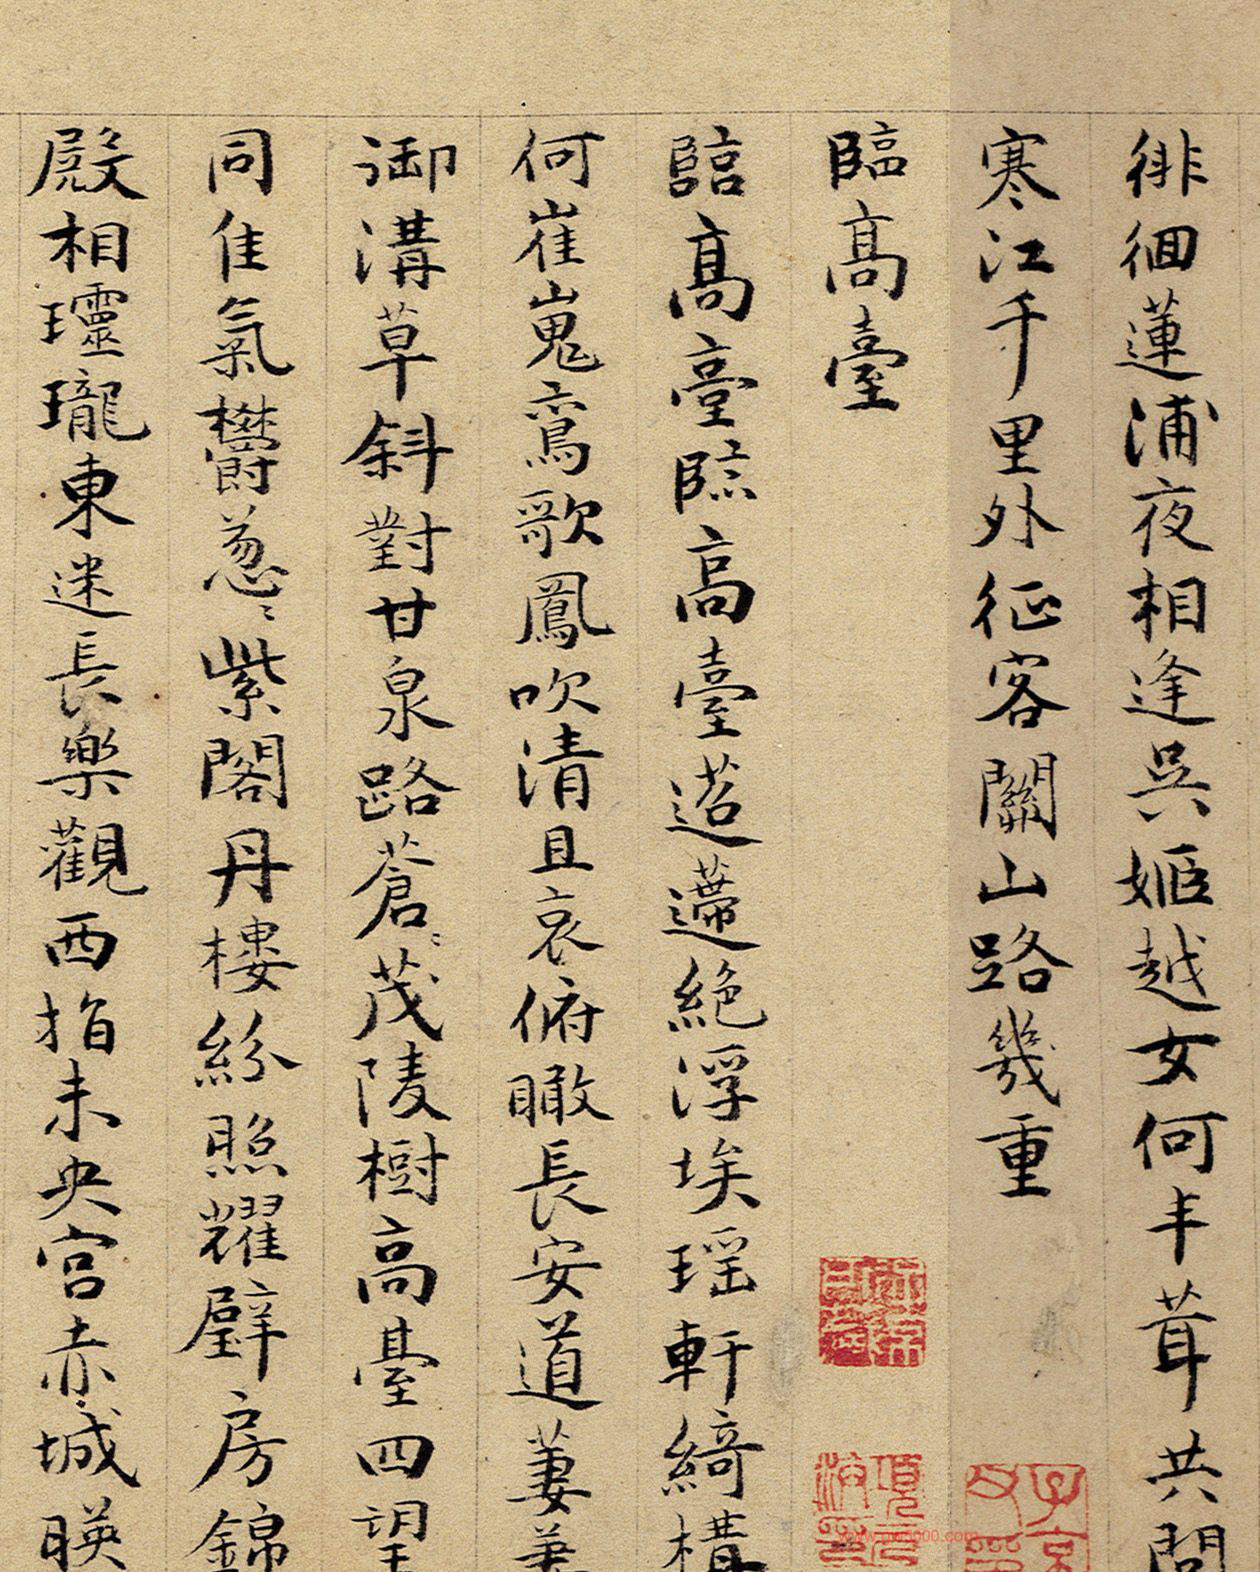 徘徊蓮浦夜相逢吳姬越女何丰茸共問
寒江千里外征客關山路幾重
臨高臺
臨高臺臨高臺迢遰絕浮埃瑶軒綺構
何崔嵬鸞歌鳳吹清且哀俯瞰長安道萋萋
御溝草斜對甘泉路蒼〻茂陵樹高臺四望
同佳氣鬱葱〻紫閣丹樓紛照耀壁房錦
殿相玲瓏東迷長樂觀西指未央宮赤城暎
www.yac8000.com